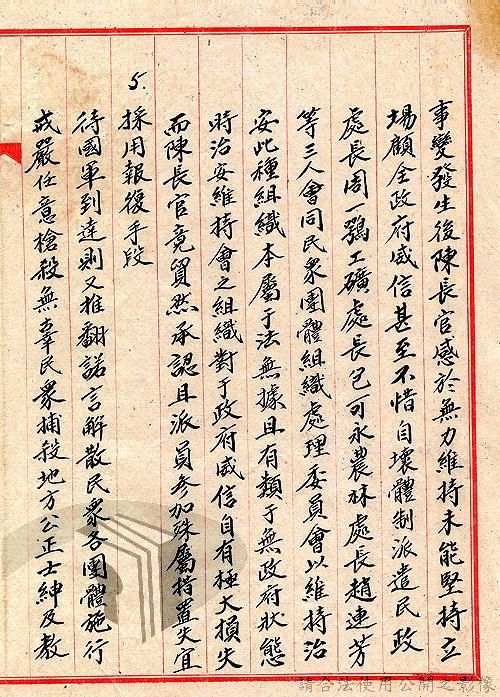 事變發生後陳長官感於無力維持未能堅持立
場顧全政府威信甚至不惜自壞體制派遣民政
處長周一鶚工礦處長包可永農林處長趙連芳
等三人會同民眾團體組織處理委員會以維持治
安此種組織本屬于法無據且有類于無政府狀態
時治安維持會之組織對于政府威信自有極大損失
而陳長官竟貿然承認且派員參加殊屬措置失宜
5.採用報復手段
待國軍到達則又推翻諾言解散民眾各團體施行
戒嚴任意槍殺無辜民眾捕殺地方公正士紳及教
請合法使用公開之影像